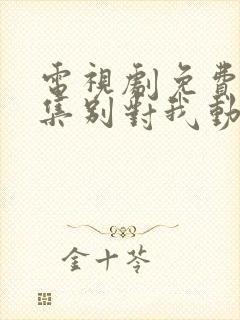 電視劇免費
集別對我動
金十苓